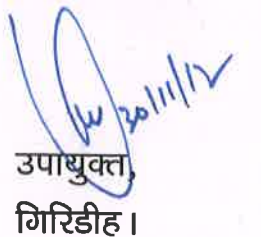 30/11/12
उपायुक्त,
गिरिडीह।